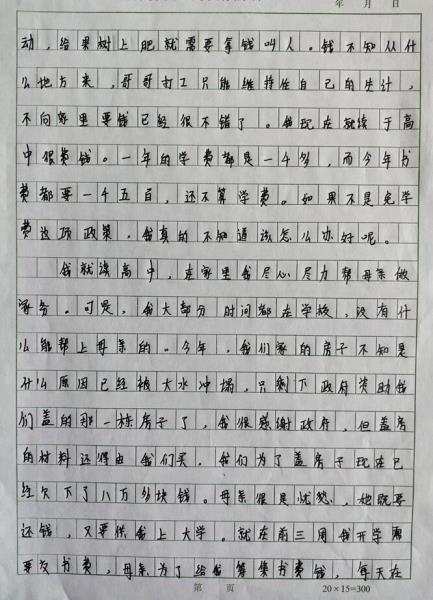 年 月 日
动，给果树上肥就需要拿钱叫人。钱不知从什
么地方来，哥哥打工只能维持住自己的生计，
不向家里要钱已经很不错了。我现在就读于高
中很费钱。一年的学费都是一千多，而今年书
费都要一千五百，还不算学费。如果不是免学
费这项政策，我真的不知道该怎么办好呢。
我就读高中，在家里我尽心尽力帮母亲做
家务。可是，我大部分时间都在学校，没有什
么能帮上母亲的。今年，我们家的房子不知是
什么原因已经被大水冲塌，只剩下政府资助我
们盖的那一栋房子了，我很感谢政府，但盖房
的材料还得由我们买，我们为了盖房子现在已
经欠下了八万多块钱。母亲很是忧愁，她既要
还钱，又要供我上大学。就在前三周我开学需
要交书费，母亲为了给我筹集书费钱，每天在
第 页 20×15=300